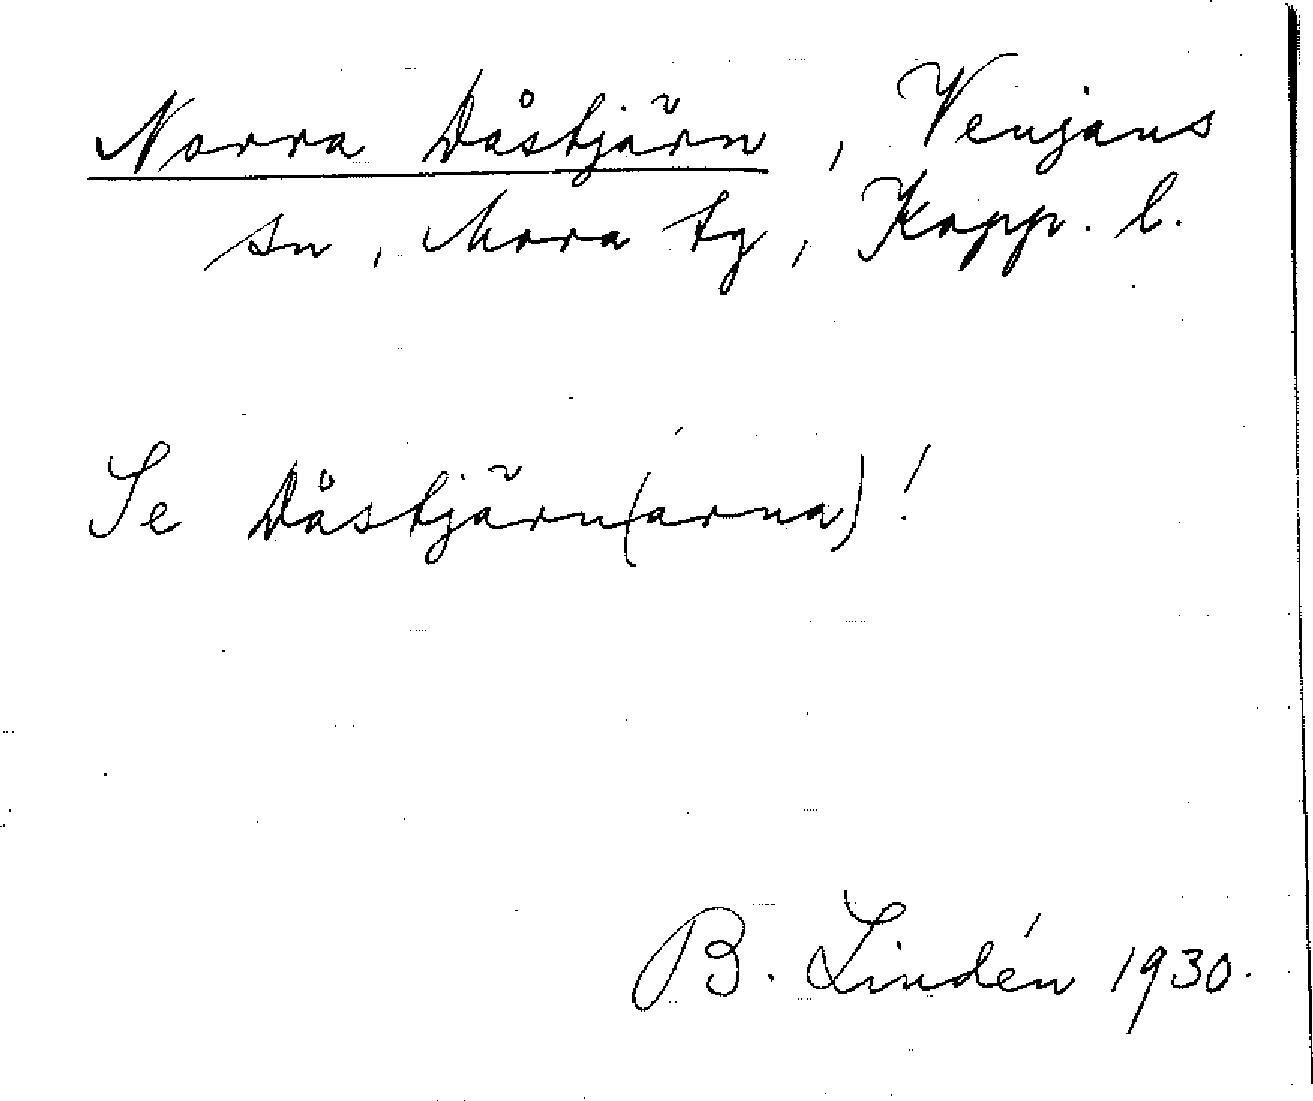 Norra Dåstjärn, Venjans
sn, Mora tg, Kopp. l.
Se Dåstjärn(arna)!
B. Lindén 1930.